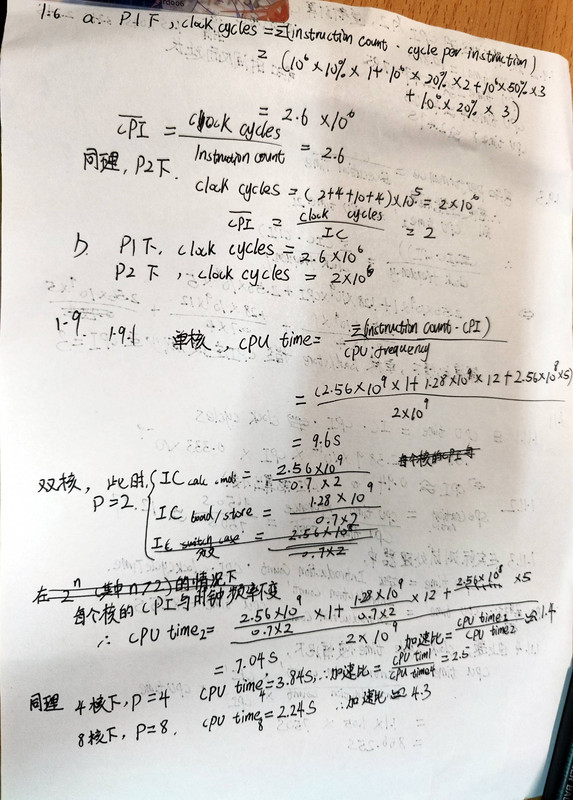 1.6 a. P1下, clock cycles = Σ(instruction count · cycle per instruction)
= (10⁶×10%×1+10⁶×20%×2+10⁶×50%×3
+ 10⁶×20%×3)
= 2.6×10⁶
CPI = clock cycles / Instruction count = 2.6
同理, P2下.
clock cycles = (2+4+10+4)×10⁵ = 2×10⁶
CPI = clock cycles / IC = 2
b. P1下, clock cycles = 2.6×10⁶
P2下, clock cycles = 2×10⁶
1.9 1.9.1 单核, CPU time = Σ(instruction count · CPI) / CPU frequency
= (2.56×10⁹×1+1.28×10⁹×12+2.56×10⁸×5) / 2×10⁹
= 9.6s
双核, 此时 P=2.
IC = 2.56×10⁹ / 0.7×2
IC load/store = 1.28×10⁹ / 0.7×2
IC = 2.56×10⁸ / 0.7×2
不变
在2ⁿ(其中n>2)的情况下
每个核的CPI与时钟频率不变
∴ CPU time₂ = (2.56×10⁹ / 0.7×2 ×1+ 1.28×10⁹ / 0.7×2 ×12+ 2.56×10⁸ ×5) / 2×10⁹
= 7.04s , 加速比 = CPU time₁ / CPU time₂ ≈ 1.4
同理 4核下, P=4 CPU time₄ = 3.84s, ∴加速比 = CPU tim1 / CPU time4 = 2.5
8核下, P=8. CPU time₈ = 2.24s ∴加速比 ≈ 4.3